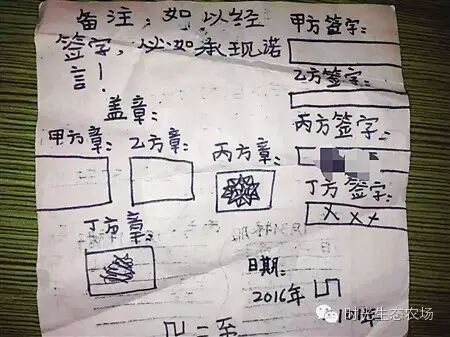 备注：如以经
签字，必如承现诺
言！
盖章：
甲方章：
乙方章：
丙方章：
丁方章：
甲方签字：
乙方签字：
丙方签字：
丁方签字：
xxx
日期：
2016年
二至
时光生态农场